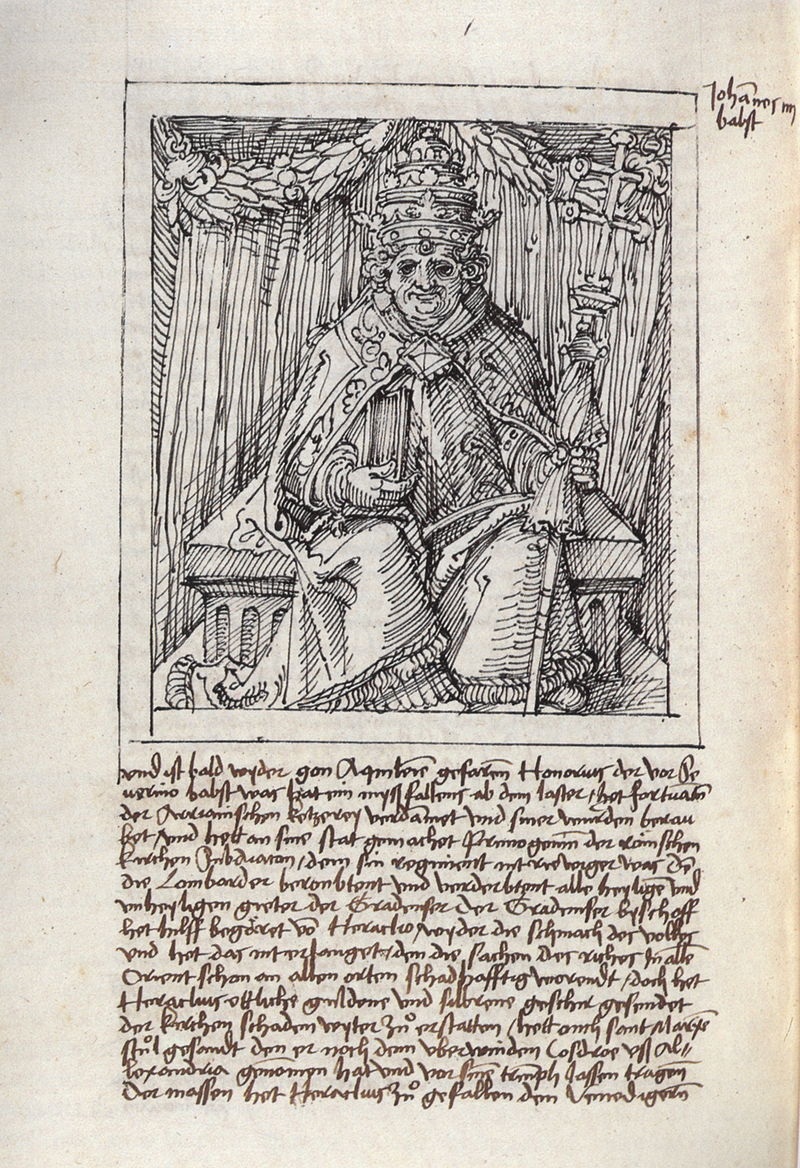 Johannes iiij
babst
vnd ist bald wyder gon Aquileie gefaren Honorius der vor Se
uerino babst was hat ein mysfallens ab dem laster / het fortunatū
der Arrianischen ketzerey verdamet vnd siner wurden berau
bet / vnd hett an sine stat gemachet Primogenium der römschen
kirchen Subdiacon / dem sin regiment nit was dē
die Lombarder beroubtent vnd verderbtent alle heylige vnd
vnheyligen gieter der Gradenser der Gradenser byschoff
het hilff begöret vō Heraclio / wyder die schmach des volkes
vnd het das nit erlanget / den die sachen des riches In allē
Orient schon an allen orten schadhafftig worent / doch het
Heraclius ettliche guldene vnd silbrene geschir gesendet
der kirchen schaden wyter zuͦ erstatten / hett ouch sant Marxē
stuͦl gesandt den er noch dem vberwinden Cosdroe vsz Al⸗
lexandria genomen hat vnd vor sinē triumph lassen tragen
Der massen het Heraclius zuͦ gefallen den Venedigern